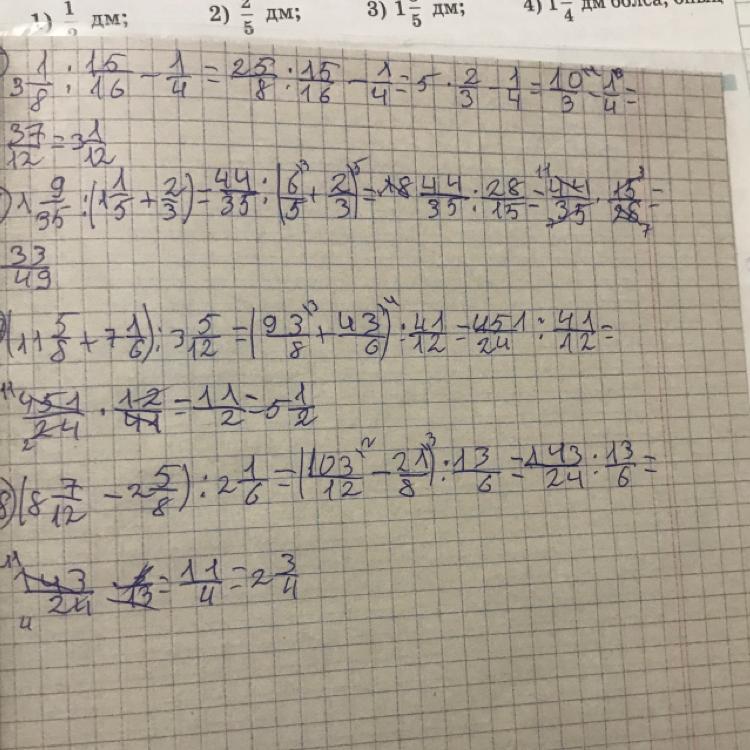 1) 1/2 дм; 2) 2/5 дм; 3) 1 3/5 дм; 4) 1 1/4 дм болса, оның
3 1/8 : 15/16 - 1/4 = 25/8 : 15/16 - 1/4 = 5 · 2/3 - 1/4 = 10/3 - 1/4 =
37/12 = 3 1/12
) 1 9/35 : (1 1/5 + 2/3) = 44/35 : (6/5 + 2/3) = 44/35 : 28/15 = 44/35 · 15/28 =
33/49
) (11 5/8 + 7 1/6) : 3 5/12 = (93/8 + 43/6) : 41/12 = 451/24 : 41/12 =
451/24 · 12/41 = 11/2 = 5 1/2
8) (8 7/12 - 2 5/8) : 2 1/6 = (103/12 - 21/8) : 13/6 = 143/24 : 13/6 =
143/24 · 6/13 = 11/4 = 2 3/4